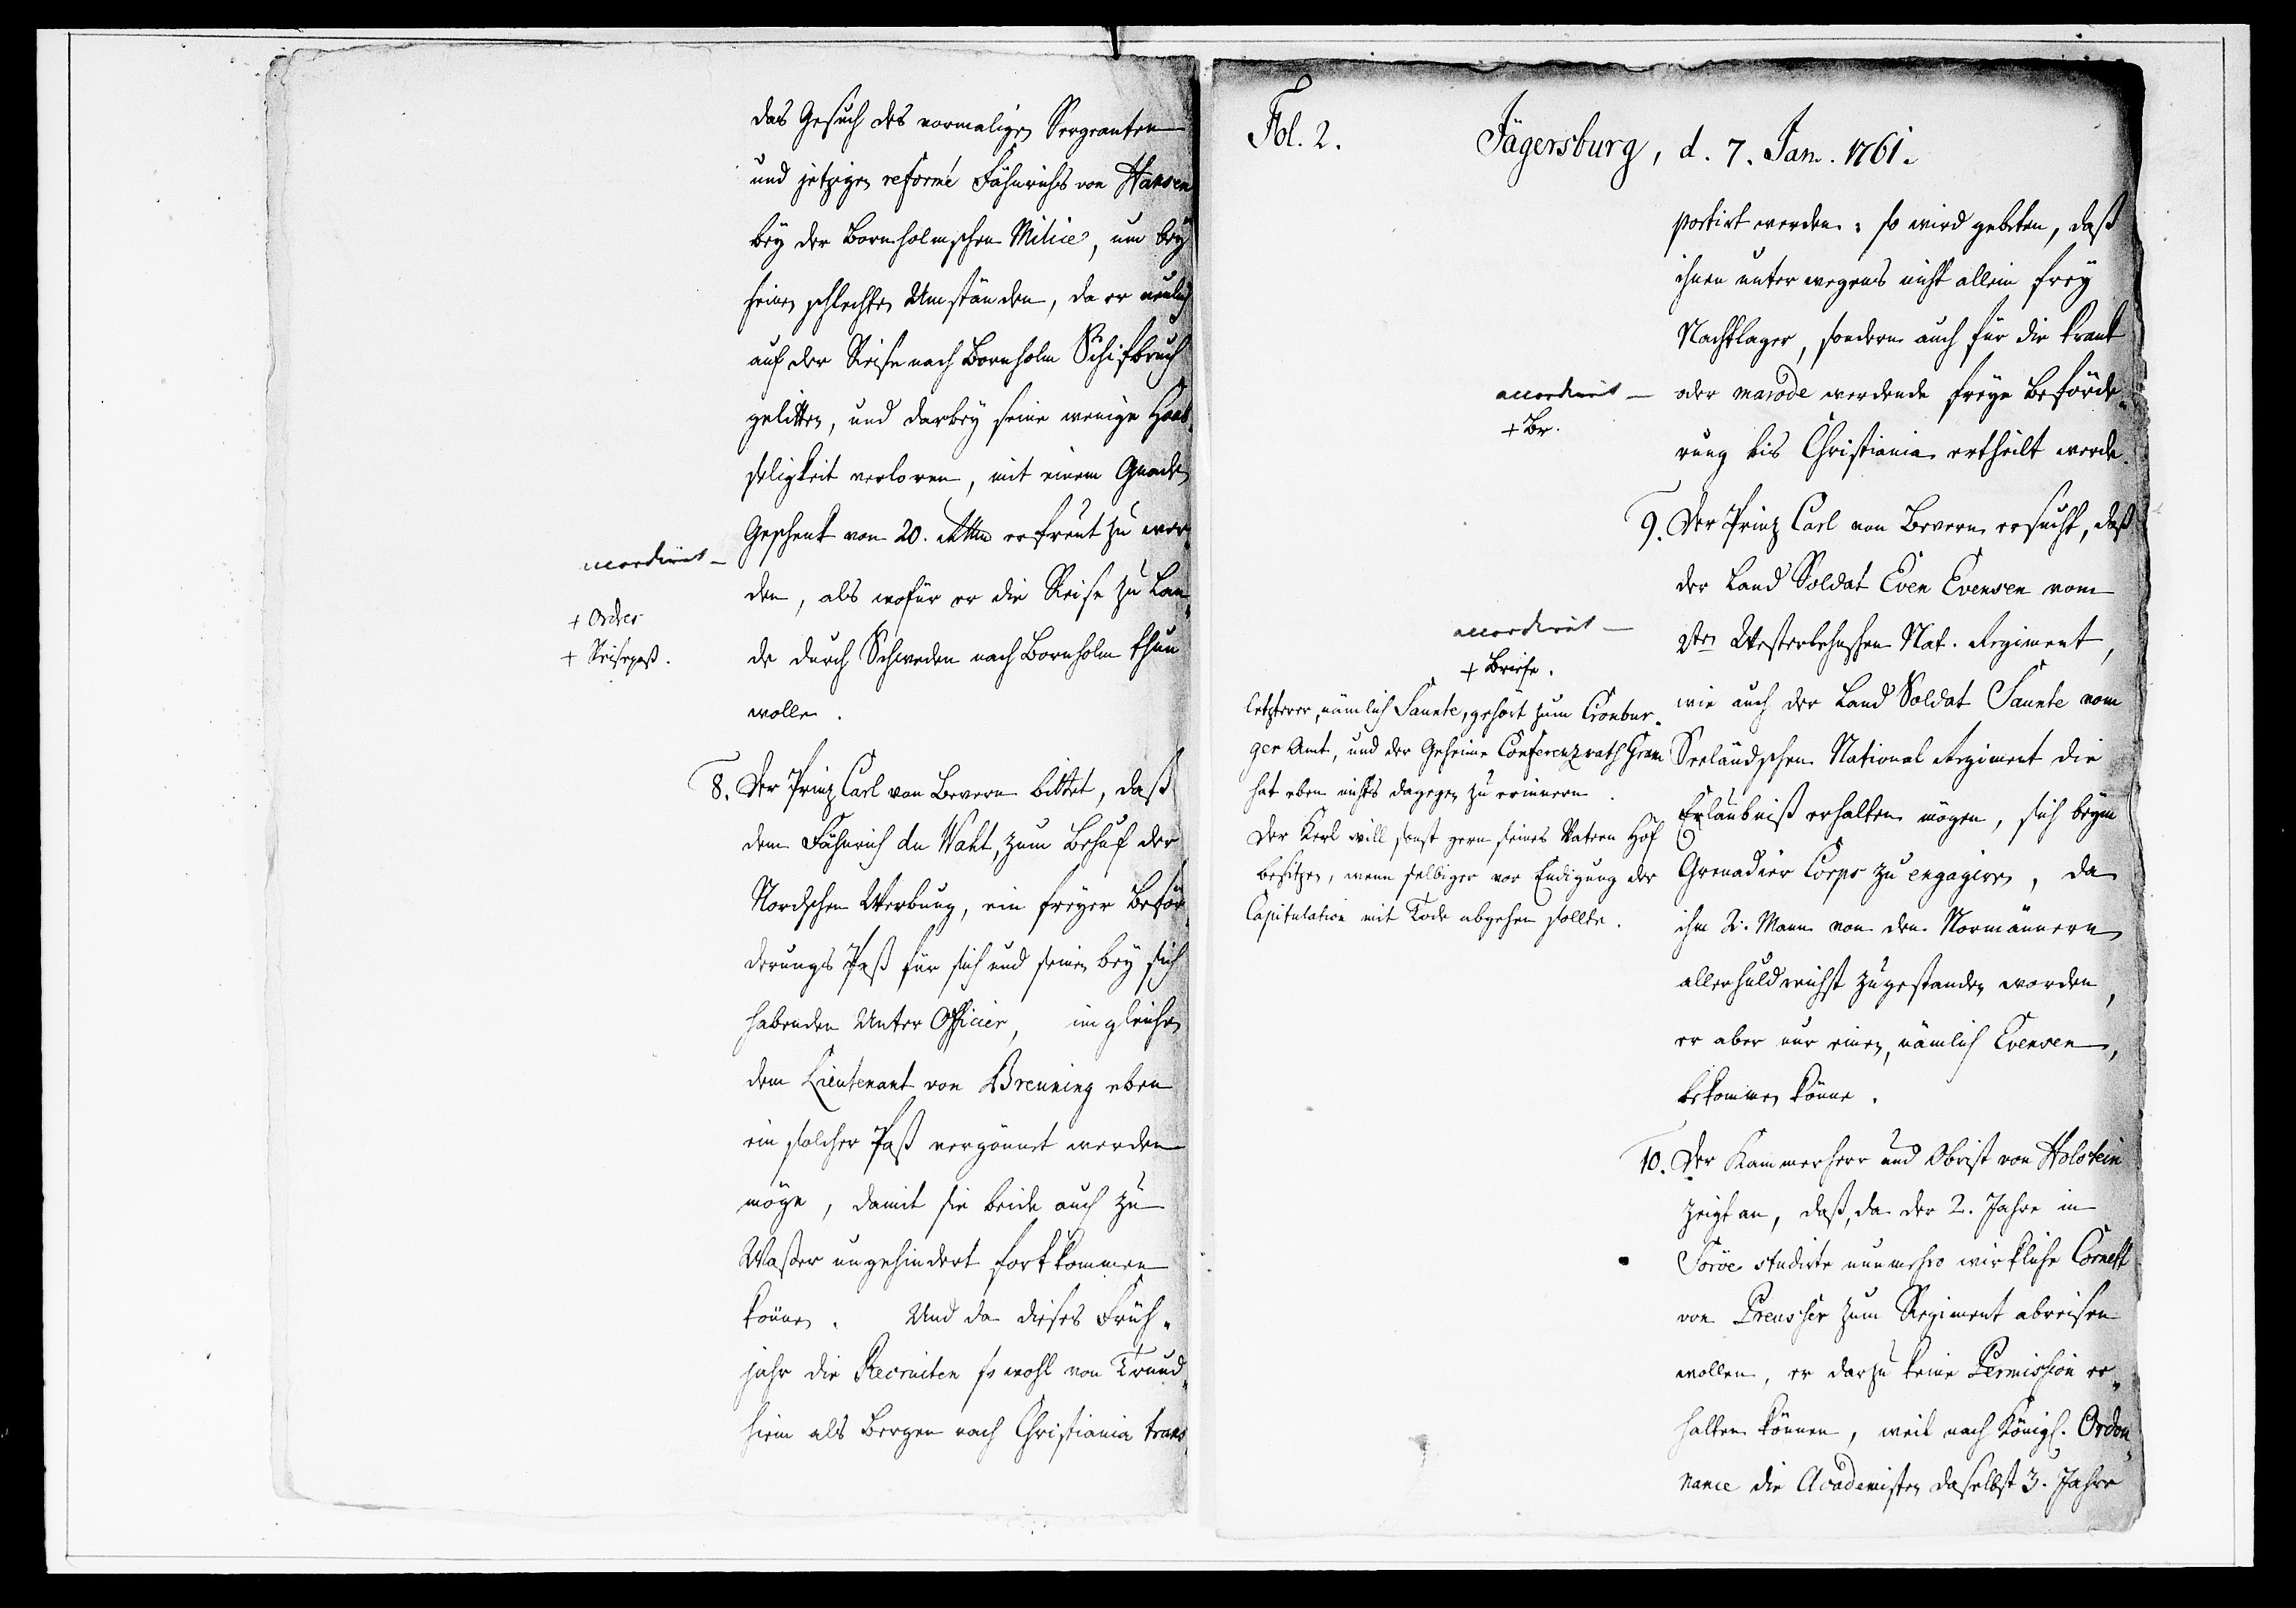 das Gesuch des vormaligen Sergeanten
und jetzigen reformé Fähnrichs von Hansen
bey der Bornholmschen Milice, um bey
seinen schlechten Umständen, da er neulich
auf der Reise nach Bornholm Schifbruch
gelitten, und darbey seine wenige Haab,
seligkeit verloren, mit einem Gnaden
Geschenk von 20. Rthlr erfreut zu wer,
accordirt -
den, als wofür er die Reise zu Lan,
+ Order
+ Reisepaß.
de durch Schweden nach Bornholm thun
wolle.
8. Der Prinz Carl von Bevern bittet, daß
dem Fähnrich du Wahl, zum Behuf der
Nordschen Werbung, ein freyer Beför,
derungs Paß für sich und seinen bey sich
habenden Unter Officier, imgleichen
dem Lieutenant von Breuning eben
ein solcher Paß vergönnet werden
möge, damit sie beide auch zu
Waßer ungehindert fortkommen
können. Und da dieses Früh,
jahr die Recruiten so wohl von Trund,
hiem als Bergen nach Christiania trans,
Fol. 2.
Jägersburg, d. 7. Jan. 1761.
portirt werden: so wird gebeten, daß
ihnen unterwegens nicht allein frey
Nachtlager, sondern auch für die krank
accordirt -
+ Br.
oder marode werdende freye Beförde,
rung bis Christiania ertheilt werde.
9. Der Prinz Carl von Bevern ersucht, daß
der Land Soldat Even Evensen vom
accordirt -
+ Briefe.
2ten Westerlehnschen Nat. Regiment,
wie auch der Land Soldat Saunte vom
Seeländschen National Regiment die
Erlaubniß erhalten mögen, sich beym
Grenadier Corps zu engagiren, da
ihm 2. Mann von den Normännern
allerhuldreichst zugestanden worden,
er aber nur einen, nämlich Evensen,
bekommen könne.
letzterer, nämlich Saunte, gehört zum Cronbur,
ger Amt, und der Geheime Conferenzrath Gram
hat eben nichts dagegen zu erinnern.
Der Kerl will sonst gern seines Vatern Hof
besitzen, wenn selbiger vor Endigung der
Capitulation mit Tode abgehen sollte.
10. Der Kammerherr und Obrist von Holstein
zeigt an, daß, da der 2. Jahre in
Soröe studirte nunmehro wirkliche Cornett
von Preusser zum Regiment abreisen
wollen, er darzu keine Permission er,
halten können, weil nach Königl. Ordon,
nance die Academisten daselbst 3. Jahre